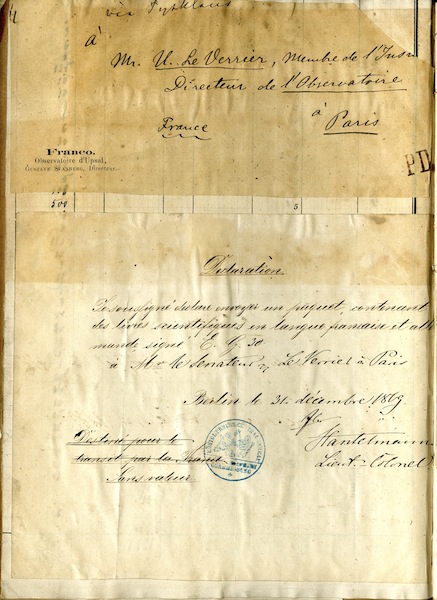 4
via
à
Mr. U. Le Verrier, Membre de l'Ins
Directeur de l'Observatoire
à
France Paris
Franco.
Observatoire d'Upsal,
Gustave Svanberg, Directeur.
PD
500 5
Déclaration
Je soussigné déclare envoyer un paquet, contenant
des livres scientifiques en langue française et alle
mande signé
à M. le Senateur Le Verrier à Paris
Berlin le 31. décembre 1869
Destiné pour le
transit par la France
Sans valeur
Lieut.-Colonel